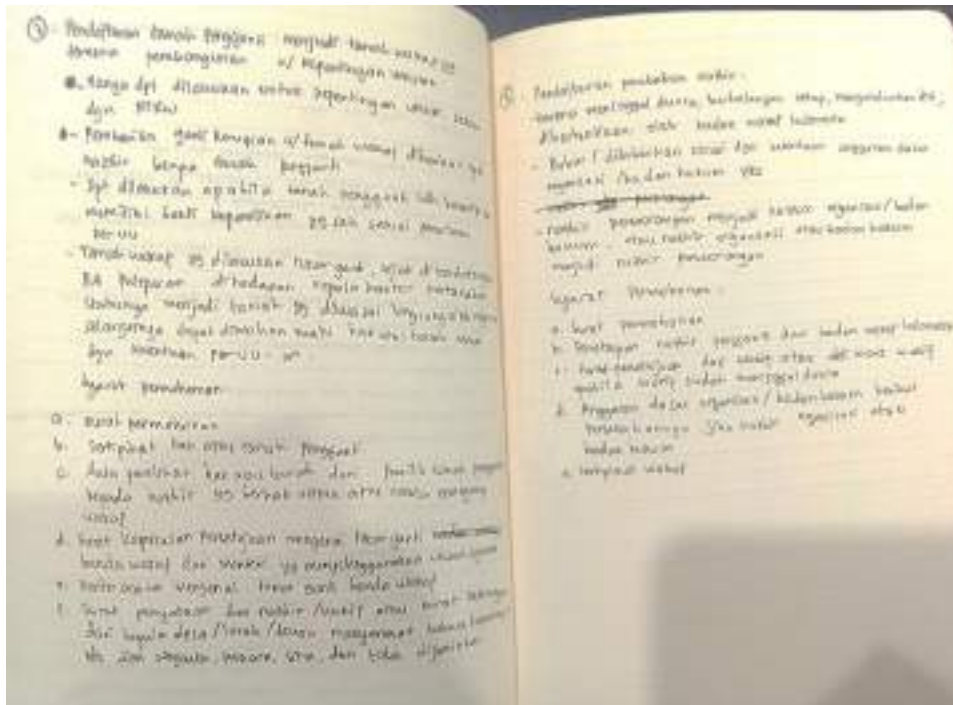 Pendaftaran tanah pengganti menjadi tanah wakaf yg
karena pembangunan u/ kepentingan umum
Hanya dpt dilakukan untuk kepentingan umum sesuai
dgn RTRW
- Pemberian ganti kerugian u/ tanah wakaf diberikan kpd
nazhir berupa tanah pengganti
- Dpt dilakukan apabila tanah pengganti tlh
memiliki bukti kepemilikan yg sah sesuai peraturan
per-UU
- Tanah wakaf yg dilakukan tukar ganti, sejak
BA Pelepasan dihadapan kepala kantor pertanahan
statusnya menjadi tanah yg dikuasai langsung
selanjutnya dapat dimohon suatu hak atas tanah
dgn ketentuan per-UU-an
Syarat permohonan
a. Surat permohonan
b. Sertipikat hak atas tanah pengganti
c. hak atas tanah dari
kepada nazhir yg atas nama
wakaf
d. Surat keputusan persetujuan mengenai tukar ganti
benda wakaf dari yg menyelenggarakan
e. tukar ganti benda wakaf
f. Surat pernyataan dari nazhir/wakif atau surat
dari kepala desa/lurah/
sengketa, perkara, sita, dan tidak dijaminkan
Pendaftaran perubahan nazhir
karena meninggal dunia, berhalangan tetap, mengundurkan diri,
diberhentikan oleh badan wakaf Indonesia
- Bubar / dibubarkan sesuai dgn ketentuan anggaran dasar
organisasi / badan hukum ybs
- nazhir perseorangan menjadi nazhir organisasi/badan
hukum, atau nazhir organisasi atau badan hukum
menjadi nazhir perseorangan
Syarat Permohonan:
a. Surat permohonan
b. Penetapan nazhir pengganti dari badan wakaf Indonesia
c. Surat dari wakif atau ahli waris wakif
apabila wakif sudah meninggal dunia
d. Anggaran dasar organisasi / badan hukum berikut
perubahannya jika nazhir organisasi atau
badan hukum
e. sertipikat wakaf